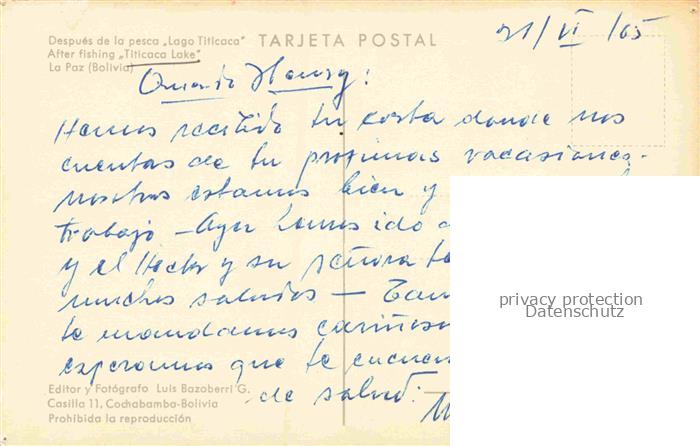 Después de la pesca „Lago Titicaca"
After fishing „Titicaca Lake"
La Paz (Bolivia)
TARJETA POSTAL
21/VI/65
Querido Henry:
Hemos recibido tu carta donde nos
cuentas de tu proximas vacasiones.
nosotros estamos bien y
trabajo – Ayer hemos ido a
y el Hector y su señora
muchos saludos –
te mandamos
esperamos que te encuen
de salud.
privacy protection
Datenschutz
Editor y Fotógrafo Luis Bazoberri G.
Casilla 11, Cochabamba-Bolivia
Prohibida la reproducción